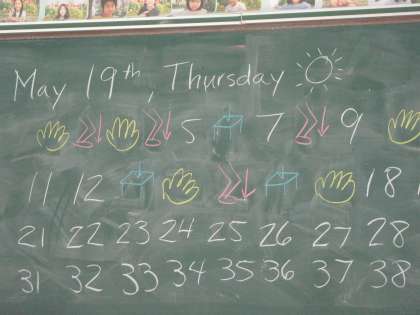 May 19th, Thursday
5 7 9
11 12 18
21 22 23 24 25 26 27 28
31 32 33 34 35 36 37 38